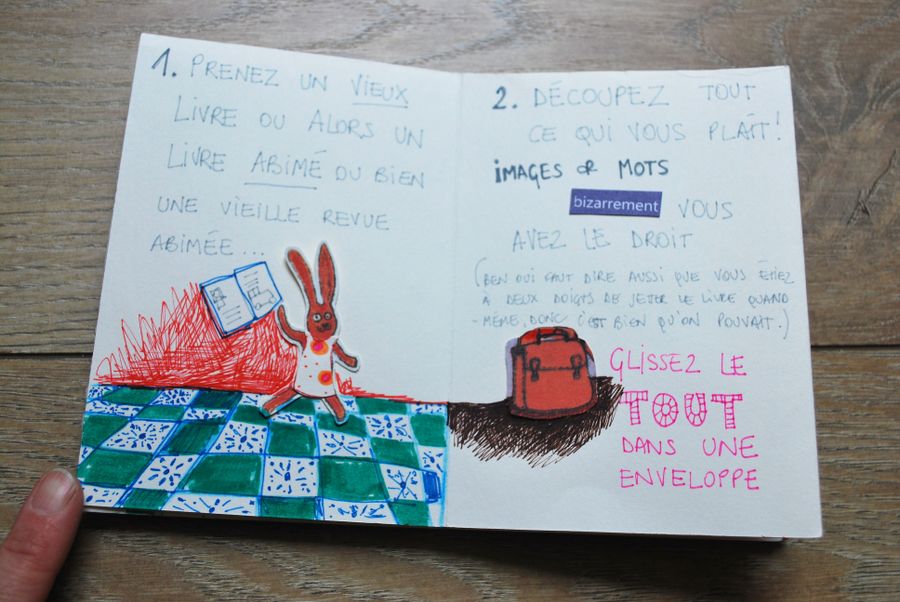 1. PRENEZ UN VIEUX
LIVRE OU ALORS UN
LIVRE ABIMÉ OU BIEN
UNE VIEILLE REVUE
ABIMÉE...
2. DÉCOUPEZ TOUT
CE QUI VOUS PLAÎT!
IMAGES OR MOTS
bizarrement VOUS
AVEZ LE DROIT
(BEN OUI FAUT DIRE AUSSI QUE VOUS ÉTIEZ
À DEUX DOIGTS DE JETER LE LIVRE QUAND
-MÊME, DONC C'EST BIEN QU'ON POUVAIT.)
GLISSEZ LE
TOUT
DANS UNE
ENVELOPPE